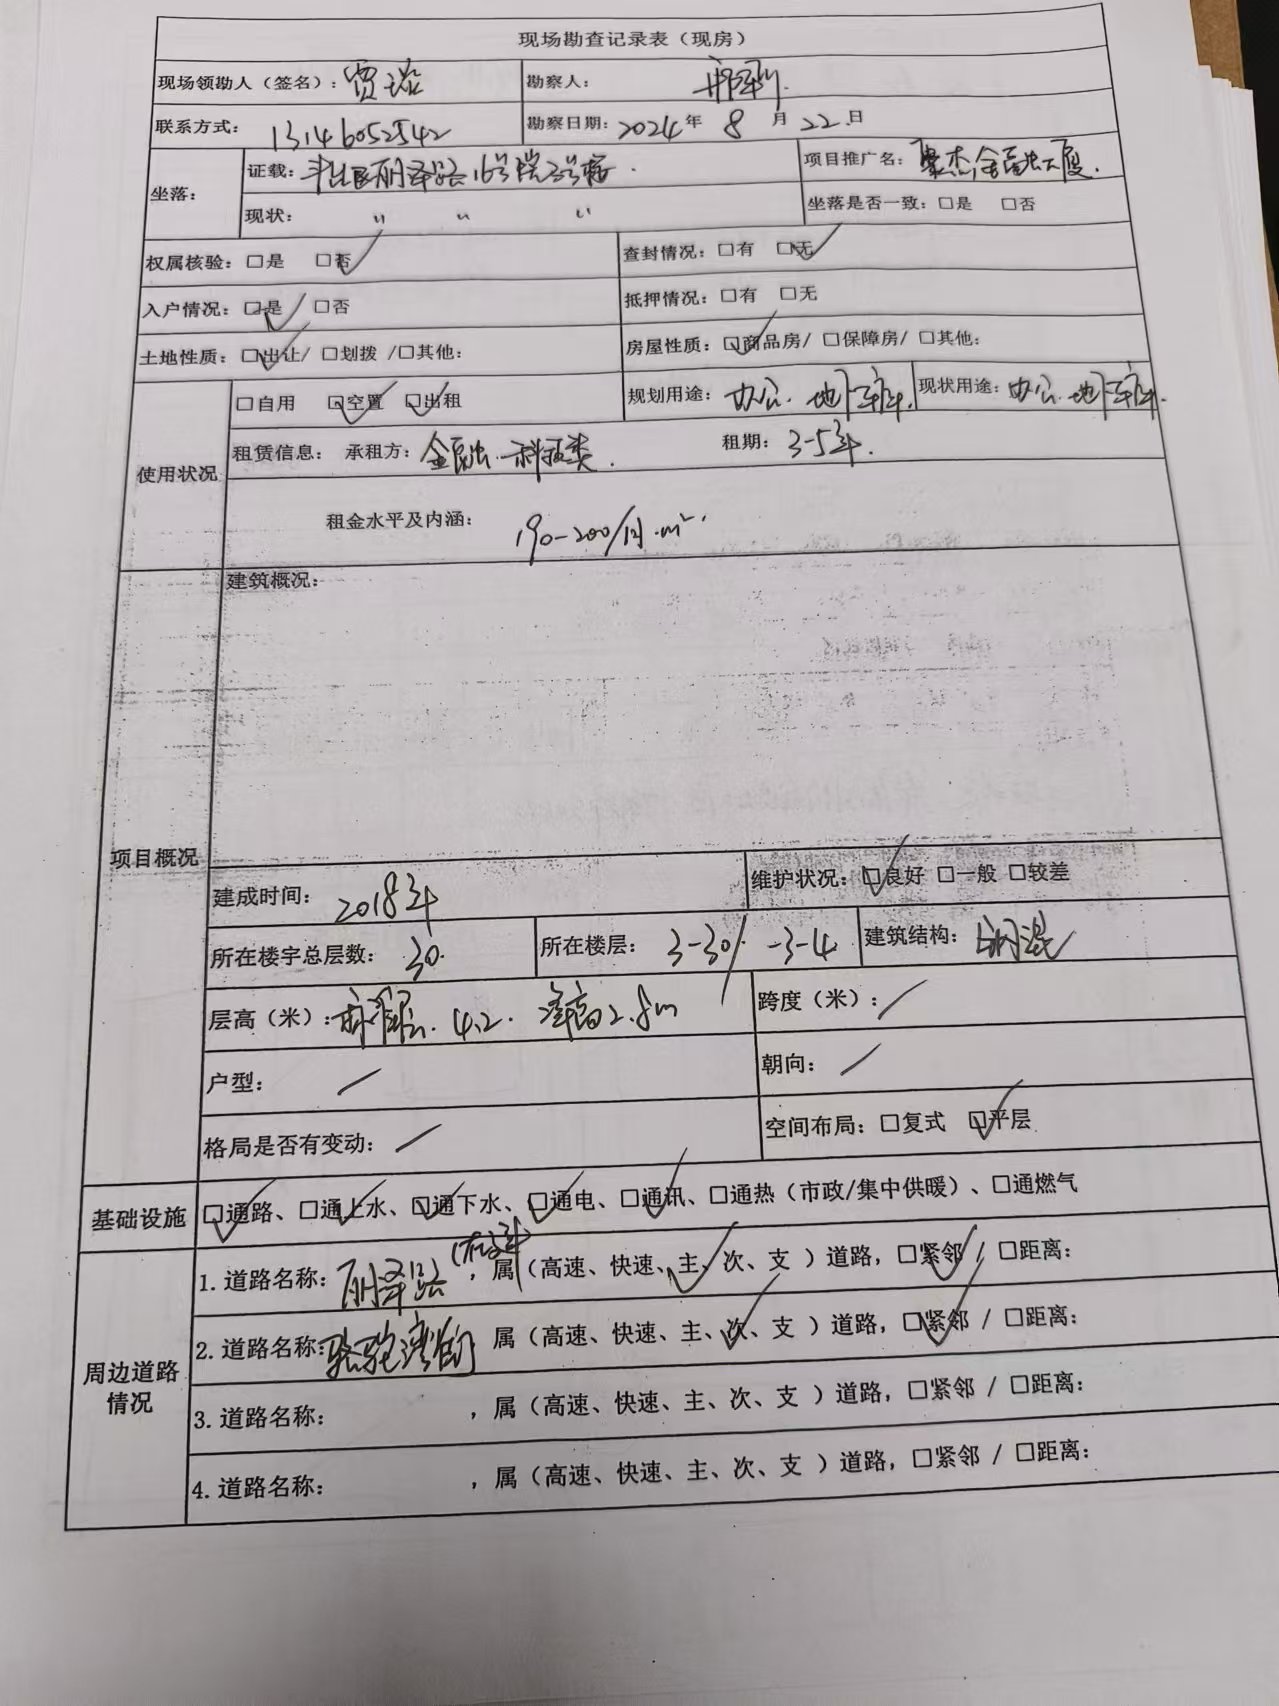 现场勘查记录表（现房）
现场领勘人（签名）：贾 勘察人：
联系方式：13146052542 勘察日期：2024年 8 月 22 日
坐落： 证载：丰台区丽泽路16号院3号楼 项目推广名：聚杰金融大厦
现状：〃 〃 〃 坐落是否一致：□是 □否
权属核验：□是 □否✓ 查封情况：□有 □无✓
入户情况：□是✓ □否 抵押情况：□有 □无
土地性质：□出让✓/ □划拨 /□其他： 房屋性质：□商品房✓/ □保障房/ □其他：
使用状况 □自用 □空置✓ □出租✓ 规划用途：办公、地下车库 现状用途：办公、地下车库
租赁信息： 承租方：金融、科技类 租期：3-5年
租金水平及内涵：190-200/月·m²
项目概况 建筑概况：
建成时间：2018年 维护状况：□良好✓ □一般 □较差
所在楼宇总层数：30 所在楼层：3-30/ -3-4 建筑结构：钢混
层高（米）：标准层 4.2 净高2.8m 跨度（米）：/
户型：/ 朝向：/
格局是否有变动：/ 空间布局：□复式 □平层✓
基础设施 □通路✓、□通上水✓、□通下水✓、□通电✓、□通讯✓、□通热（市政/集中供暖）、□通燃气
周边道路情况 1. 道路名称：丽泽路，属（高速、快速、主✓、次、支 ）道路，□紧邻✓ / □距离：
2. 道路名称：骆驼湾街 属（高速、快速、主、次✓、支 ）道路，□紧邻✓ / □距离：
3. 道路名称： ，属（高速、快速、主、次、支 ）道路，□紧邻 / □距离：
4. 道路名称： ，属（高速、快速、主、次、支 ）道路，□紧邻 / □距离：